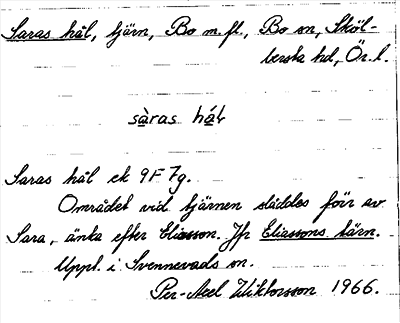 Saras hål, tjärn, Bo m.fl., Bo sn, Sköl-
lersta hd, Ör. l.
sàras hál
Saras hål ek 9F 7g.
Området vid tjärnen städdes förr av
Sara, änka efter Eliasson. Jfr Eliassons tärn.
Uppt. i Svennevads sn.
Per-Axel Wiktorsson 1966.